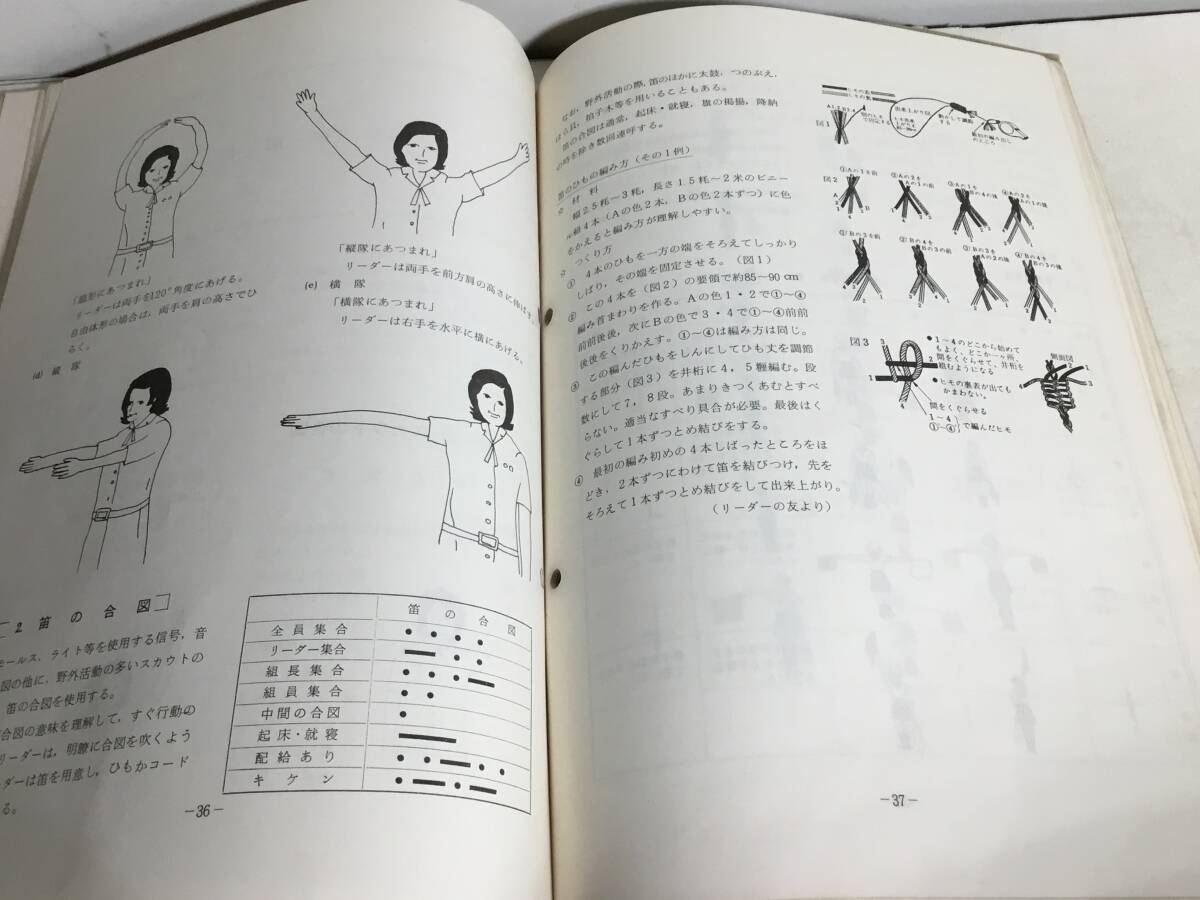 「扇形にあつまれ」
リーダーは両手を120°角度にあげる。
自由体形の場合は，両手を肩の高さでひ
らく。
(d) 縦 隊
「縦隊にあつまれ」
リーダーは両手を前方肩の高さに伸ばす。
(e) 横 隊
「横隊にあつまれ」
リーダーは右手を水平に横にあげる。
2 笛の合図
モールス、ライト等を使用する信号，音
図の他に，野外活動の多いスカウトの
笛の合図を使用する。
合図の意味を理解して，すぐ行動の
リーダーは，明瞭に合図を吹くよう
ダーは笛を用意し，ひもかコード
る。
笛の合図
全員集合 ● ● ● ●
リーダー集合 ━ ● ●
組長集合 ● ● ● ━
組員集合 ● ●
中間の合図 ●
起床・就寝 ━━
配給あり ● ━ ● ━ ● ●
キケン ● ━ ● ━
－36－
なお，野外活動の際，笛のほかに太鼓，つのぶえ，
ほら貝，拍子木等を用いることもある。
笛の合図は通常，起床・就寝，旗の掲揚，降納
の時を除き数回連呼する。
笛のひもの編み方（その1例）
☆ 材 料
幅2.5粍～3粍，長さ1.5粍～2米のビニー
ル紐4本（Aの色2本，Bの色2本ずつ）に色
をかえると編み方が理解しやすい。
☆ つくり方
① 4本のひもを一方の端をそろえてしっかり
しばり，その端を固定させる。（図1）
② この4本を（図2）の要領で約85～90cm
編み首まわりを作る。Aの色1・2で①～④
前前後後，次にBの色で3・4で①～④前前
後後をくりかえす。①～④は編み方は同じ。
③ この編んだひもをしんにしてひも丈を調節
する部分（図3）を井桁に4，5糎編む。段
数にして7，8段。あまりきつくあむとすべ
らない。適当なすべり具合が必要。最後はく
ぐらして1本ずつとめ結びをする。
④ 最初の編み初めの4本しばったところをほ
どき，2本ずつにわけて笛を結びつけ，先を
そろえて1本ずつとめ結びをして出来上がり。
（リーダーの友より）
ヒモの表
ヒモの裏
図1
出来上がり図
図2
①Aの1を前
②Aの2を
Aの1の前
図3
●1～4のどこから始めて
もよく、どこか一ヶ所、
間をくぐらせて、井桁を
組むようになる
●ヒモの裏表が出ても
かまわない。
間をくぐらせる
1～4
①～④
で編んだヒモ
側面図
－37－